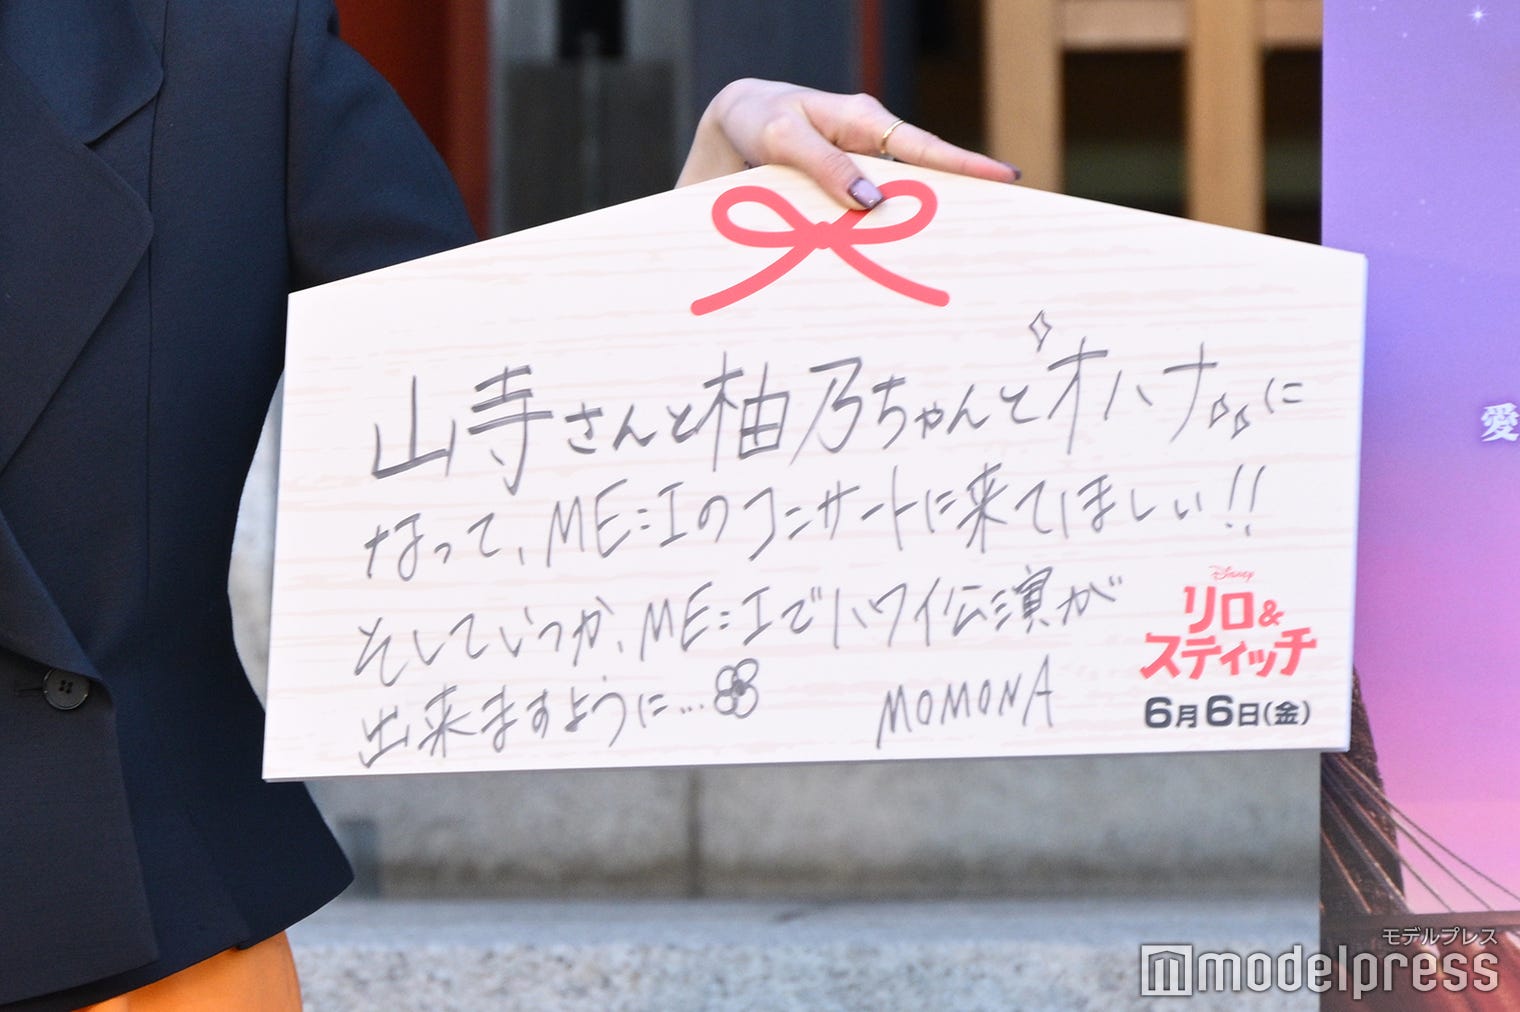 山寺さんと柚乃ちゃんとオハナに
なって、ME:Iのコンサートに来てほしい!!
そしていつか、ME:Iでハワイ公演が
出来ますように…
MOMONA
Disney
リロ&
スティッチ
6月6日(金)
愛
モデルプレス
modelpress